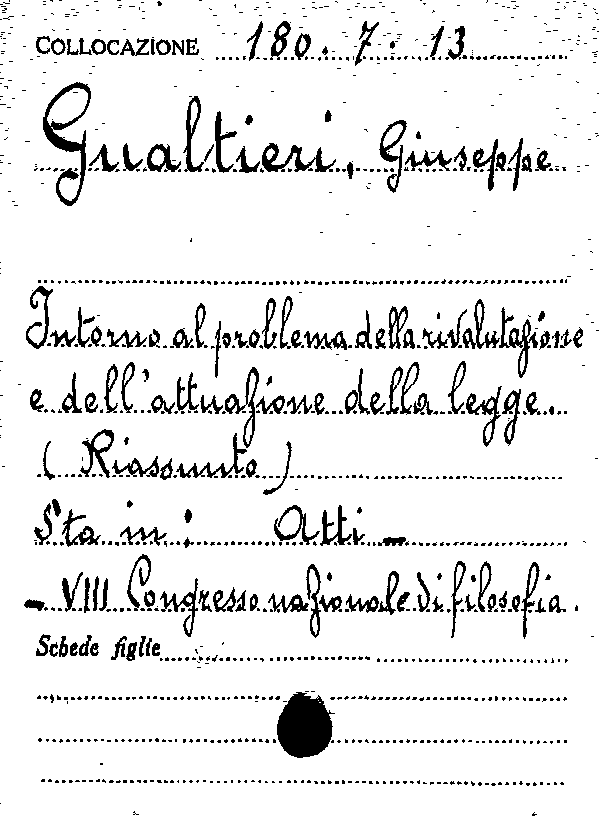 COLLOCAZIONE 180. 7. 13
Gualtieri, Giuseppe
Intorno al problema della rivalutazione
e dell'attuazione della legge.
(Riassunto)
Sta in: Atti –
– VIII Congresso nazionale di filosofia.
Schede figlie